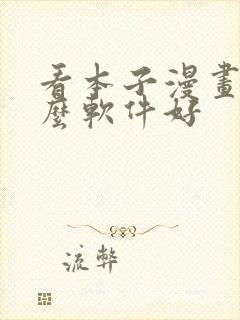 看本子漫畫
麼軟件好
流弊